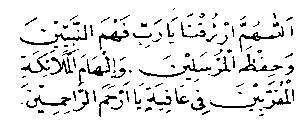 اَللّٰهُمَّ ارْزُقْنَا يَا رَبِّ فَهْمَ النَّبِيِّيْنَ
وَحِفْظَ الْمُرْسَلِيْنَ . وَإِلْهَامَ الْمَلَائِكَةِ
الْمُقَرَّبِيْنَ فِى عَافِيَةٍ يَا أَرْحَمَ الرَّاحِمِيْنَ.